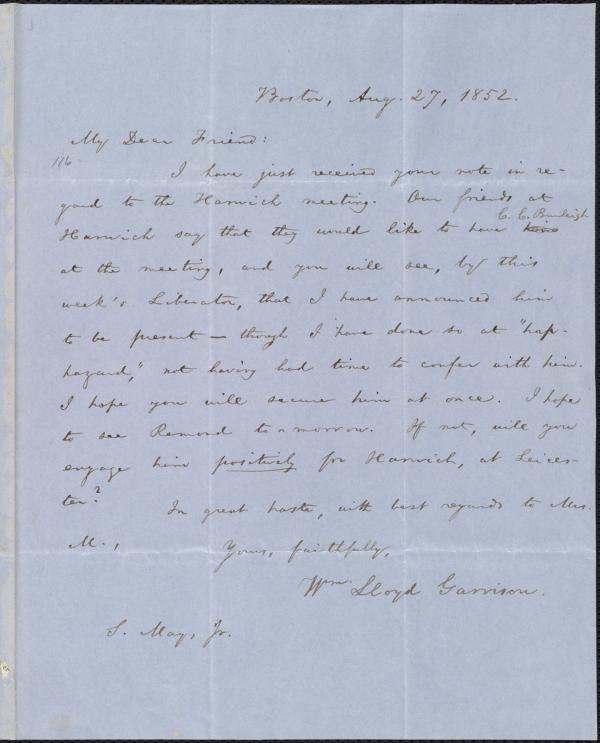 Boston, Aug. 27, 1852.
My Dear Friend:
116-
I have just received your note in re-
gard to the Harwich meeting. Our friends at
C. C. Burleigh
Harwich say that they would like to have
at the meeting, and you will see, by this
week's Liberator, that I have announced him
to be present — though I have done so at "hap-
hazard," not having had time to confer with him.
I hope you will secure him at once. I hope
to see Remond to-morrow. If not, will you
engage him positively for Harwich, at Leices-
ter?
In great haste, with best regards to Mrs.
M.,
Yours, faithfully,
Wm. Lloyd Garrison.
S. May, Jr.